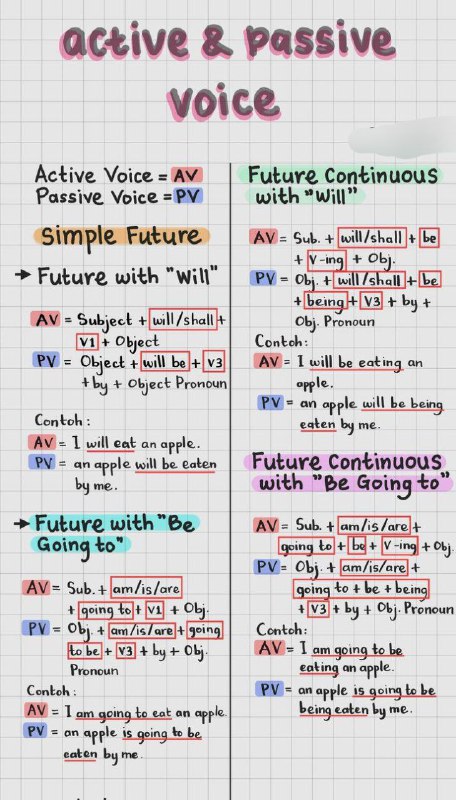 active & passive
voice
Active Voice = AV
Passive Voice = PV
Simple Future
→ Future with "Will"
AV = Subject + will/shall +
V1 + Object
PV = Object + will be + V3
+ by + Object Pronoun
Contoh :
AV = I will eat an apple.
PV = an apple will be eaten
by me.
→ Future with "Be
Going to"
AV = Sub. + am/is/are
+ going to + V1 + Obj.
PV = Obj. + am/is/are + going
to be + V3 + by + Obj.
Pronoun
Contoh :
AV = I am going to eat an apple.
PV = an apple is going to be
eaten by me.
Future Continuous
with "Will"
AV = Sub. + will/shall + be
+ V-ing + Obj.
PV = Obj. + will/shall + be
+ being + V3 + by +
Obj. Pronoun
Contoh :
AV = I will be eating an
apple.
PV = an apple will be being
eaten by me.
Future Continuous
with "Be Going to"
AV = Sub. + am/is/are +
going to + be + V-ing + Obj.
PV = Obj. + am/is/are +
going to + be + being
+ V3 + by + Obj. Pronoun
Contoh:
AV = I am going to be
eating an apple.
PV = an apple is going to be
being eaten by me.